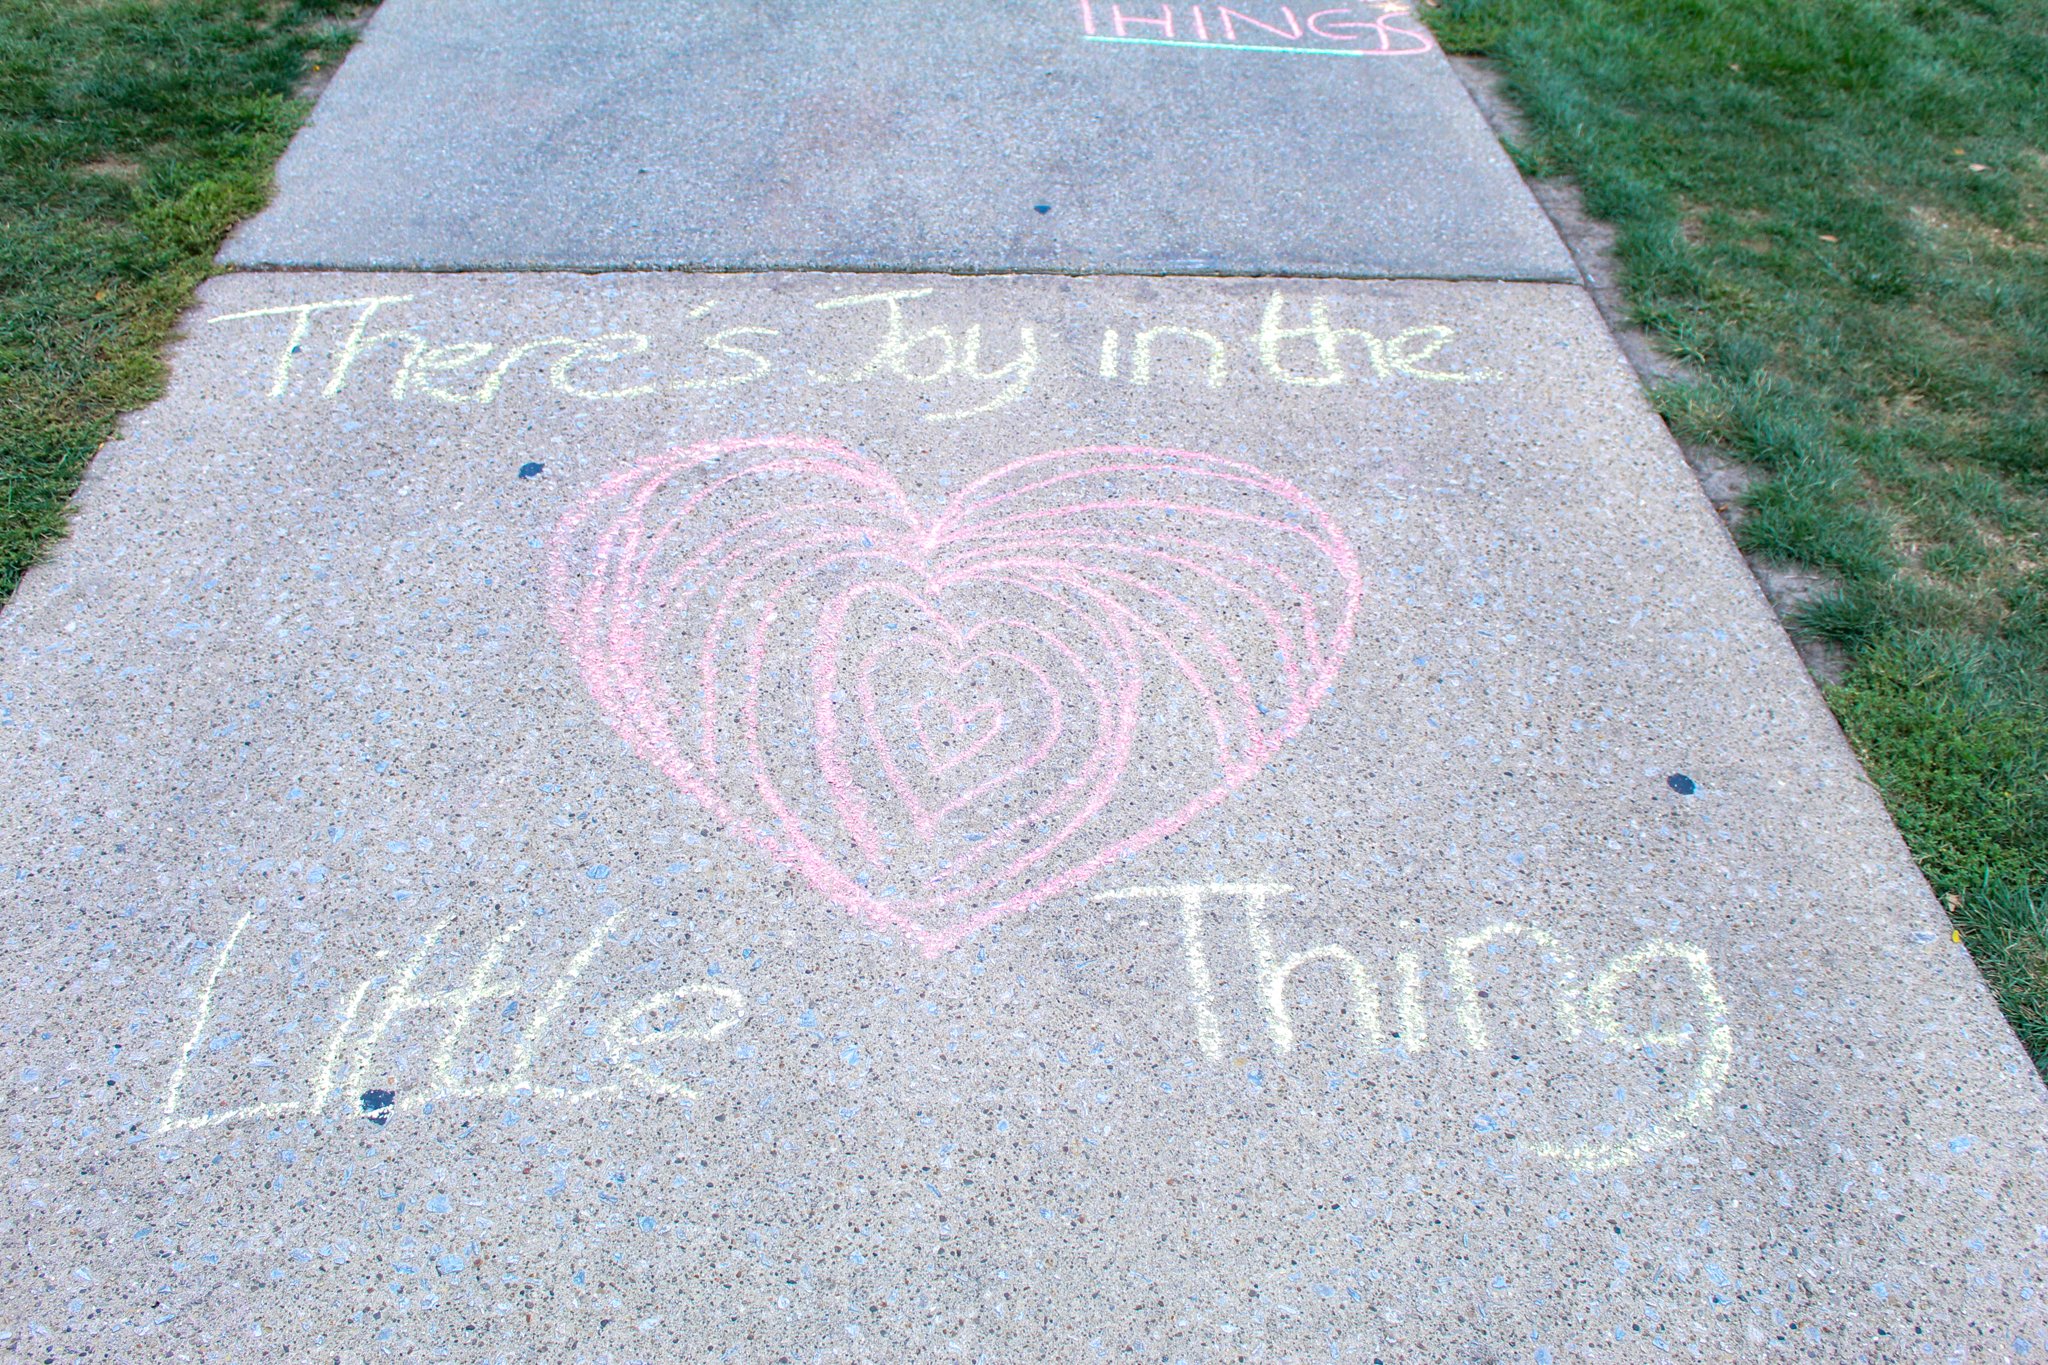 THINGS
There's Joy in the
Little Thing